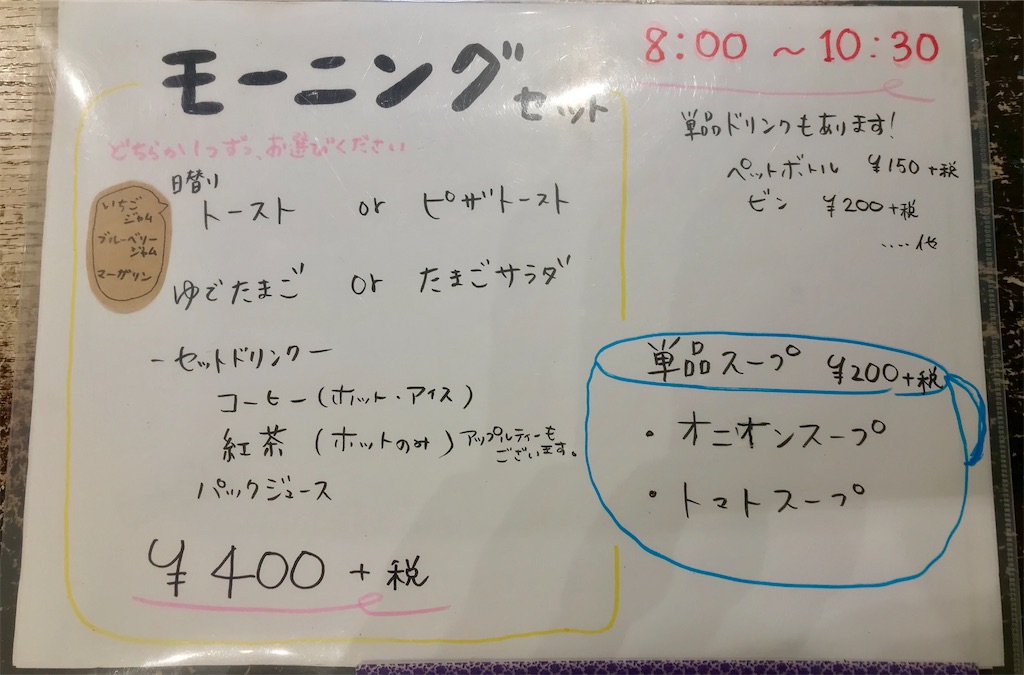 モーニング
セット
どちらか1つずつ、お選びください
日替り
いちご
ジャム
ブルーベリー
ジャム
マーガリン
トースト or ピザトースト
ゆでたまご or たまごサラダ
-セットドリンクー
コーヒー(ホット・アイス)
紅茶 (ホットのみ) アップルティーも
ございます。
パックジュース
¥400 + 税
8:00 ~ 10:30
単品ドリンクもあります!
ペットボトル ¥150+税
ビン ¥200+税
....他
単品スープ ¥200+税
・オニオンスープ
・トマトスープ